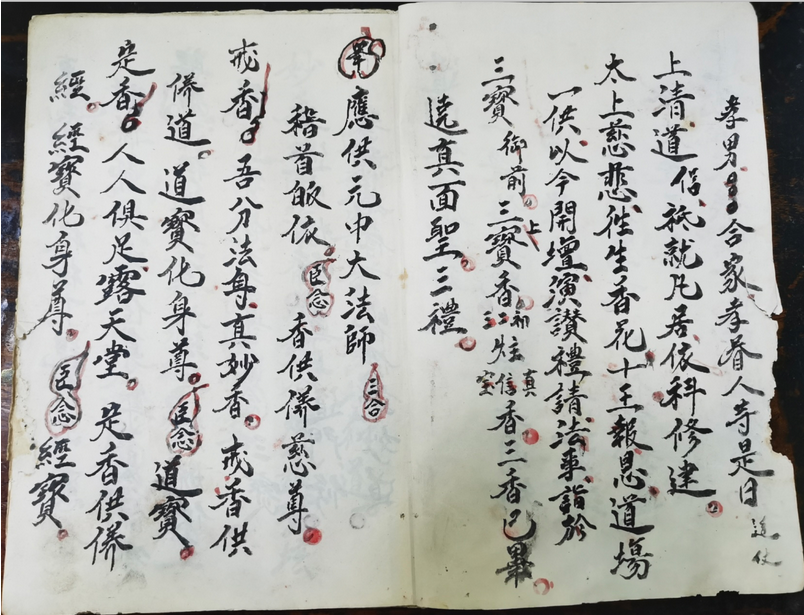 孝男 合家孝眷人等是日
上清道侶祇就凡居依科修建
太上慈悲往生香花十王報恩道場
一供以今開壇演讚禮請法事詣於
三寶御前上三寶香初二三炷信香三香已畢
遶真面聖三禮
應供元中大法師 三合
稽首皈依 臣念 香供俻慈尊
戒香 吾分法每真妙香戒香供
俻道 道寶化身尊 臣念 道寶
是香 人人俱足露天堂 是香供俻
經 經寶化身尊 臣念 經寶